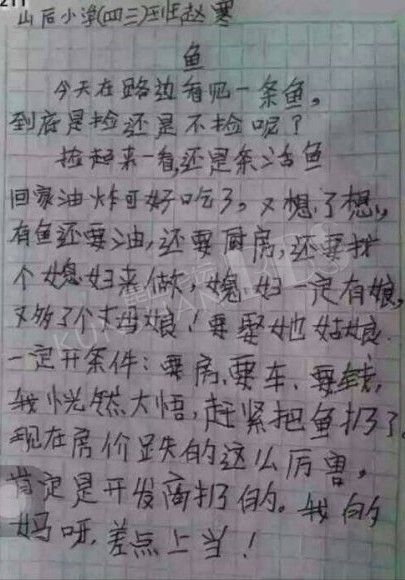 211
山后小学(四三)班赵寒
鱼
今天在路边看见一条鱼，
到底是捡还是不捡呢？
捡起来一看，还是条活鱼
回家油炸可好吃了，又想了想，
有鱼还要油，还要厨房，还要找
个媳妇来做，媳妇一定有娘，
又多了个丈母娘！要娶她姑娘
一定开条件：要房、要车、要钱，
我恍然大悟，赶紧把鱼扔了。
现在房价跌的这么厉害，
肯定是开发商扔的。我的
妈呀，差点上当！